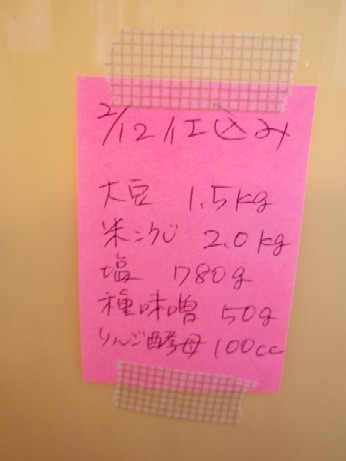 2/12 仕込み
大豆 1.5kg
米こうじ 2.0kg
塩 780g
種味噌 50g
りんご酵母 100cc